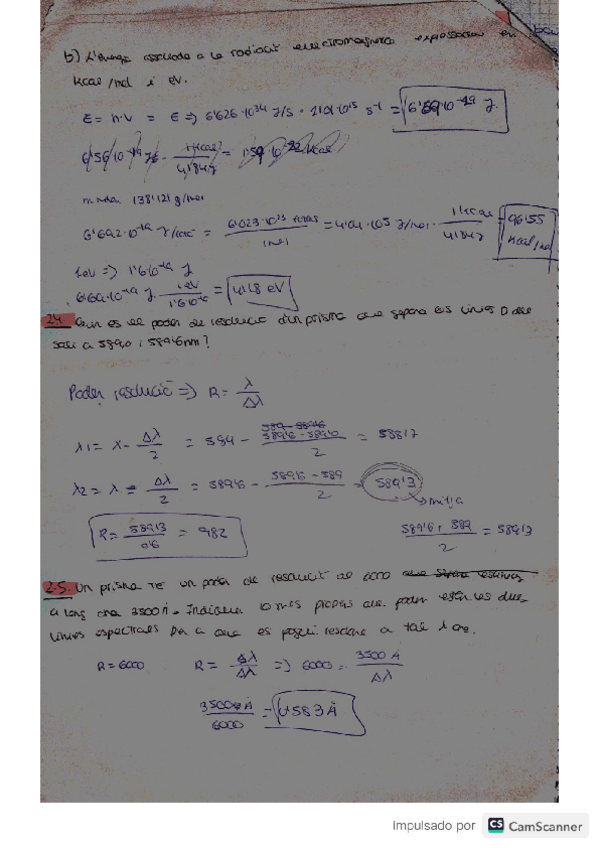 b) L'energia associada a la radiació electromagnètica expressada en
kcal/mol i eV.
E = h·ν = E => 6'626·10³⁴ J/s · 1'01·10¹⁵ s⁻¹ = 6'69·10⁻¹⁹ J.
6'692·10⁻¹⁹ J/ = 6'023·10²³ / 1mol = 4'04·10⁵ J/mol · 1 kcal / 4'184 J = 96'55 kcal/mol
1eV => 1'6·10⁻¹⁹ J
6'69·10⁻¹⁹ J · 1eV / 1'6·10⁻¹⁹ = 4'18 eV
2.4. Quin es el poder de resolució d'un prisma que separa les línies D del
sodi a 589'0 i 589'6nm?
Poder resolució => R = λ / Δλ
λ1 = λ - Δλ / 2 = 589'4 - 589'6 - 589'0 / 2 = 588'7
λ2 = λ = Δλ / 2 = 589'6 - 589'6 - 589 / 2 = 589'3
mitja
R = 589'3 / 0'6 = 982
589'6 + 589 / 2 = 589'3
2.5. Un prisma té un poder de resolució de 6000
a long ona 3500 Å. Indiqueu lo més pròxims que poden estar les dues
línies espectrals per a que es pugui resoldre a tal λ ona.
R = 6000 R = Δλ / Δλ => 6000 = 3500 Å / Δλ
3500 Å / 6000 = 0'583 Å
Impulsado por CS CamScanner